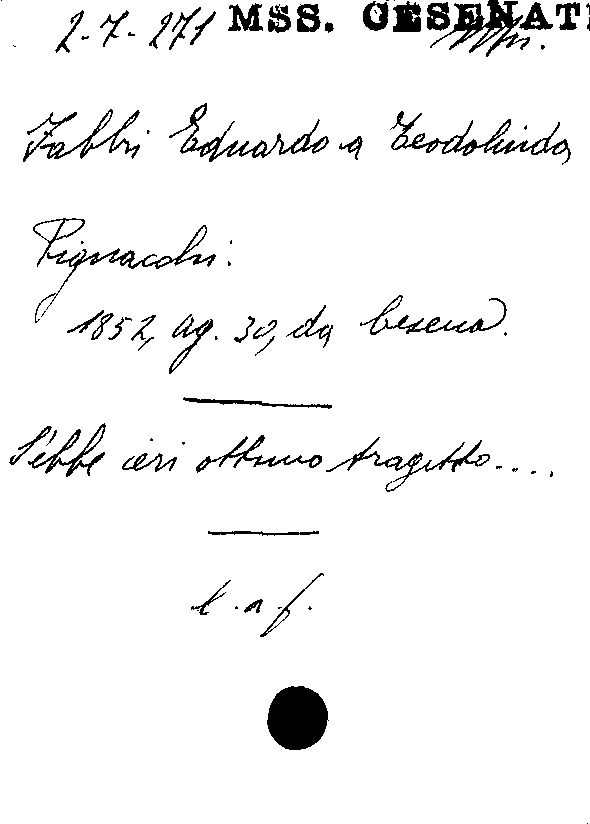 2-7-271 MSS. CESENATI
Fabbri Eduardo a Teodolinda
Pignacchi.
1852, ag. 30, da Cesena.
S'ebbe ieri ottimo tragitto....
l.a.f.